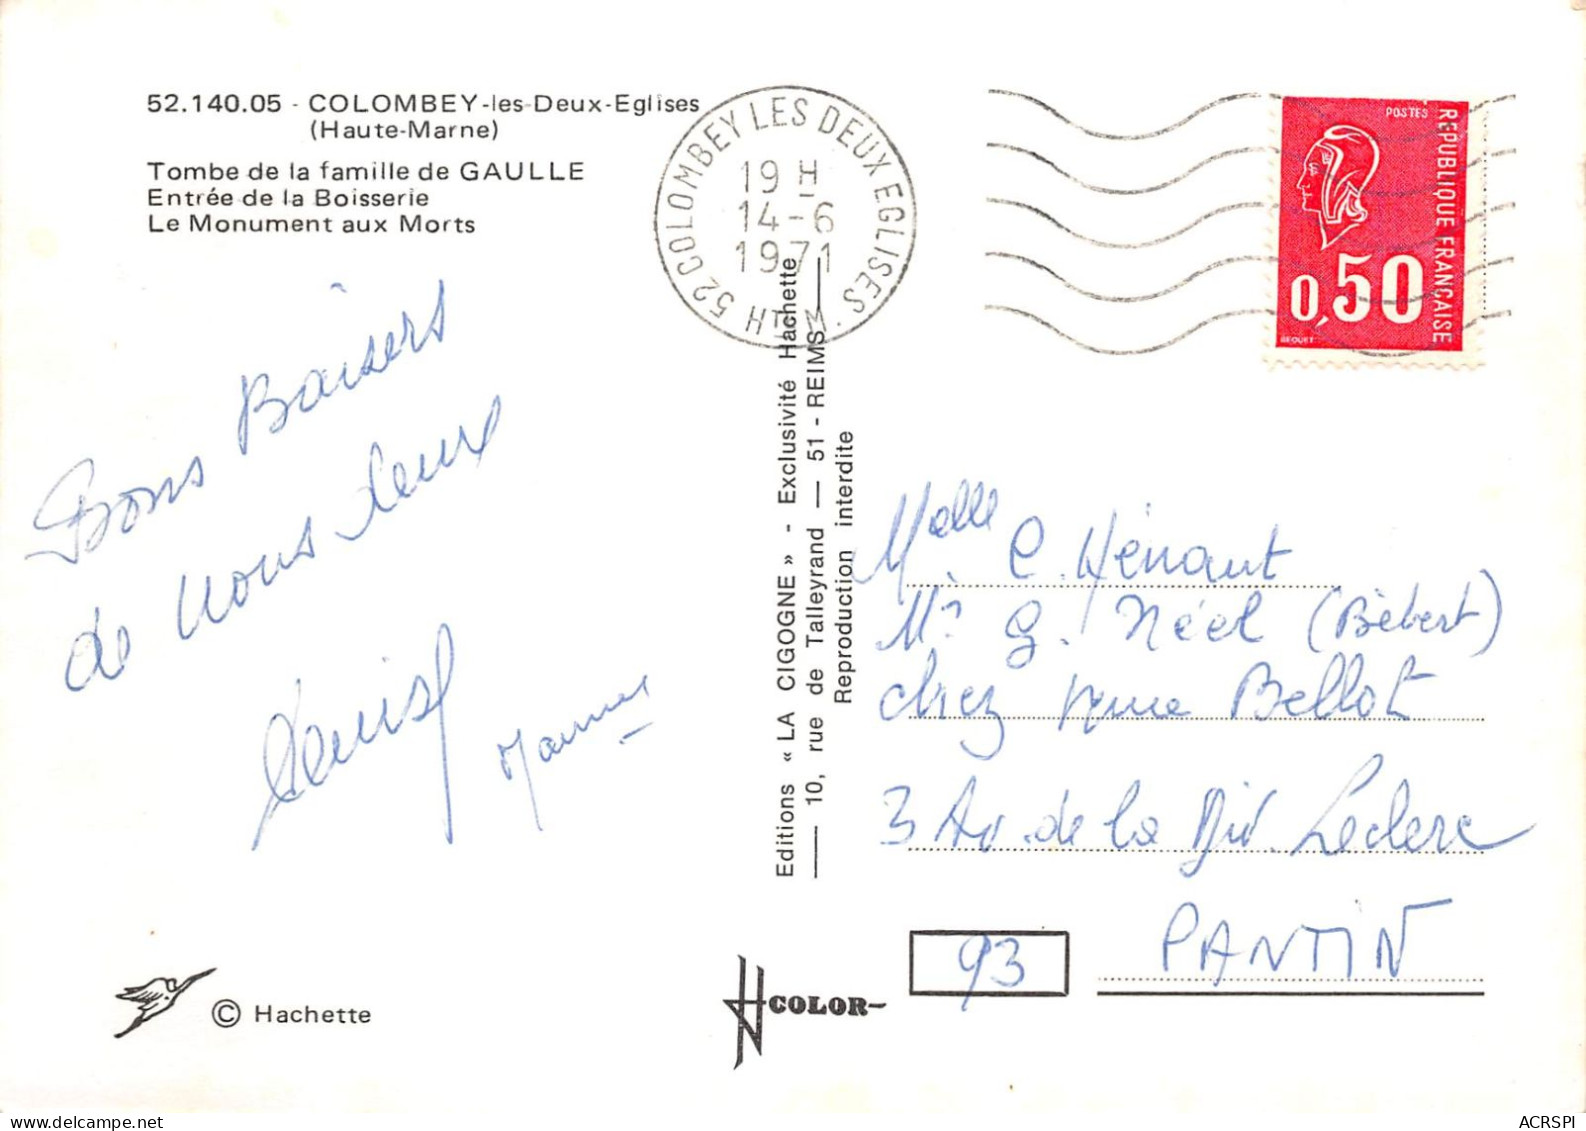 52.140.05 - COLOMBEY-les-Deux-Eglises
(Haute-Marne)
Tombe de la famille de GAULLE
Entrée de la Boisserie
Le Monument aux Morts
Bons Baisers
de nous deux
Denise
52 COLOMBEY LES DEUX EGLISES · HTE M
19 H
14-6
1971
POSTES
REPUBLIQUE FRANÇAISE
0,50
BEQUET
Editions « LA CIGOGNE » - Exclusivité Hachette
— 10, rue de Talleyrand — 51 - REIMS —
Reproduction interdite
Melle C. Hénaut
Mr G. Néel (Bébert)
chez Mme Bellot
3 Av. de la Div. Leclerc
93 PANTIN
© Hachette
COLOR
ACRSPI